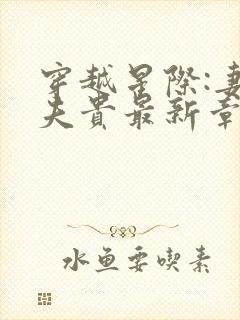 穿越星際:妻
夫貴最新章
水魚要喫素